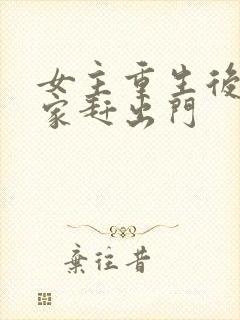 女主重生後
家趕出門
棄往昔